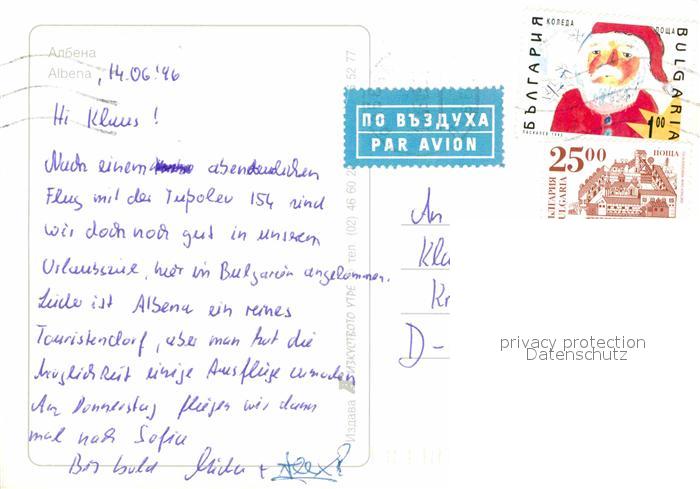 Албена
Albena, 14.06.'96
Hi Klaus!
Nach einem abenteuerlichen
Flug mit der Tupolev 154 sind
wir doch noch gut in unserem
Urlaubsziel, hier in Bulgarien angekommen.
Leider ist Albena ein reines
Touristendorf, aber man hat die
Möglichkeit einige Ausflüge zu machen
Am Donnerstag fliegen wir dann
mal nach Sofia
Bis bald
ПО ВЪЗДУХА
PAR AVION
БЪЛГАРИЯ
КОЛЕДА
ПОЩА
BULGARIA
1.00
25.00
ПОЩА
BULGARIA
An
Kla
Kr
D-
privacy protection
Datenschutz
Издава
ИЗКУСТВОТО УТРЕ
тел. (02) 46 60 2